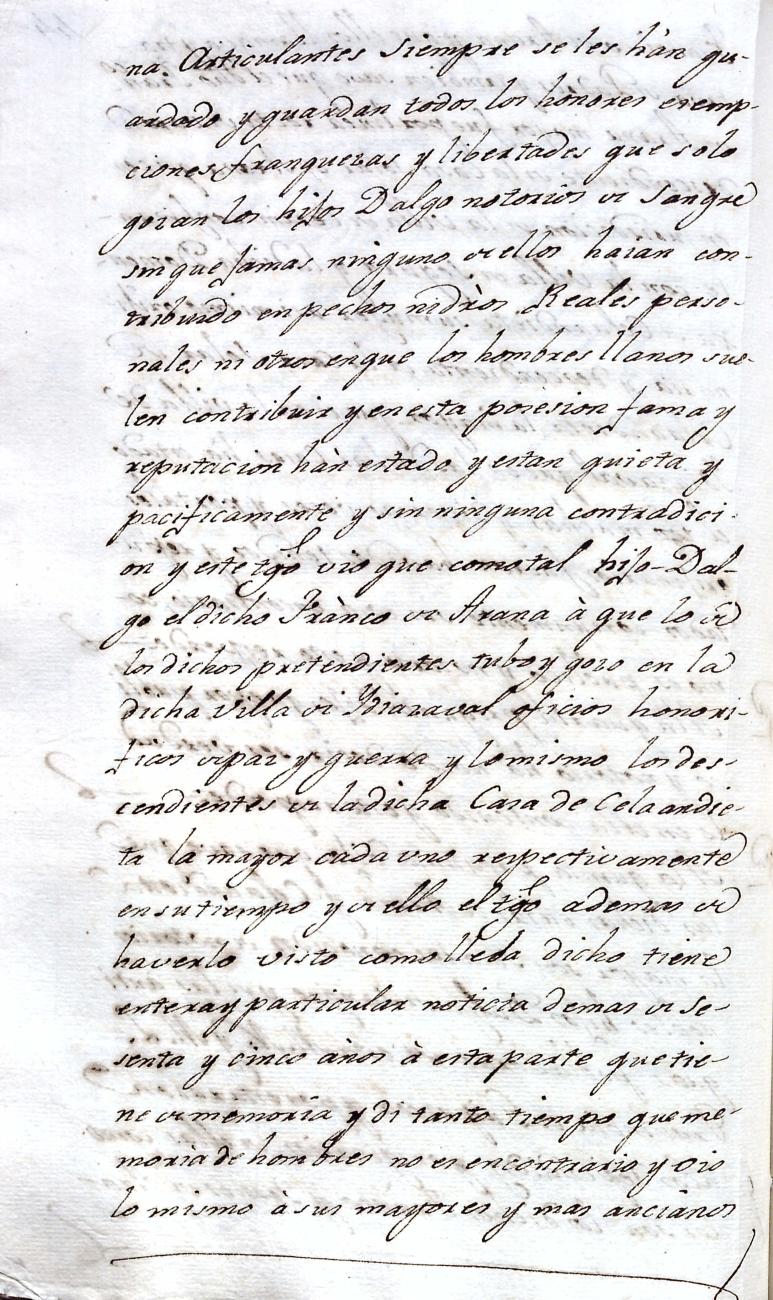 na. Articulantes siempre se les hàn gu-
ardado y guardan todos los honores exemp-
ciones franquezas y libertades que solo
gozan los hijos Dalgo notorios de sangre
sin que jamas ninguno de ellos haian con-
tribuido en pechos ni dr̀os Reales perso-
nales ni otros en que los hombres llanos sue-
len contribuir y en esta posesion fama y
reputacion hàn estado y estan quieta y
pacificamente y sin ninguna contradici-
on y este tgō vio que como tal hijo-Dal-
go el dicho Frànco de Arana à que lo de
los dichos pretendientes tubo y gozo en la
dicha villa de Ydiazaval oficios honori-
ficos de paz y guerra y lo mismo los des-
cendientes de la dicha Casa de Celaandie-
ta la mayor cada uno respectivamente
en su tiempo y de ello el tgō ademas de
haverlo visto como lleba dicho tiene
entera y particular noticia demas de se-
senta y cinco años à esta parte que tie-
ne de memoria y di tanto tiempo que me-
moria de hombres no es en contrario y vio
lo mismo à sus mayores y mas ancianos